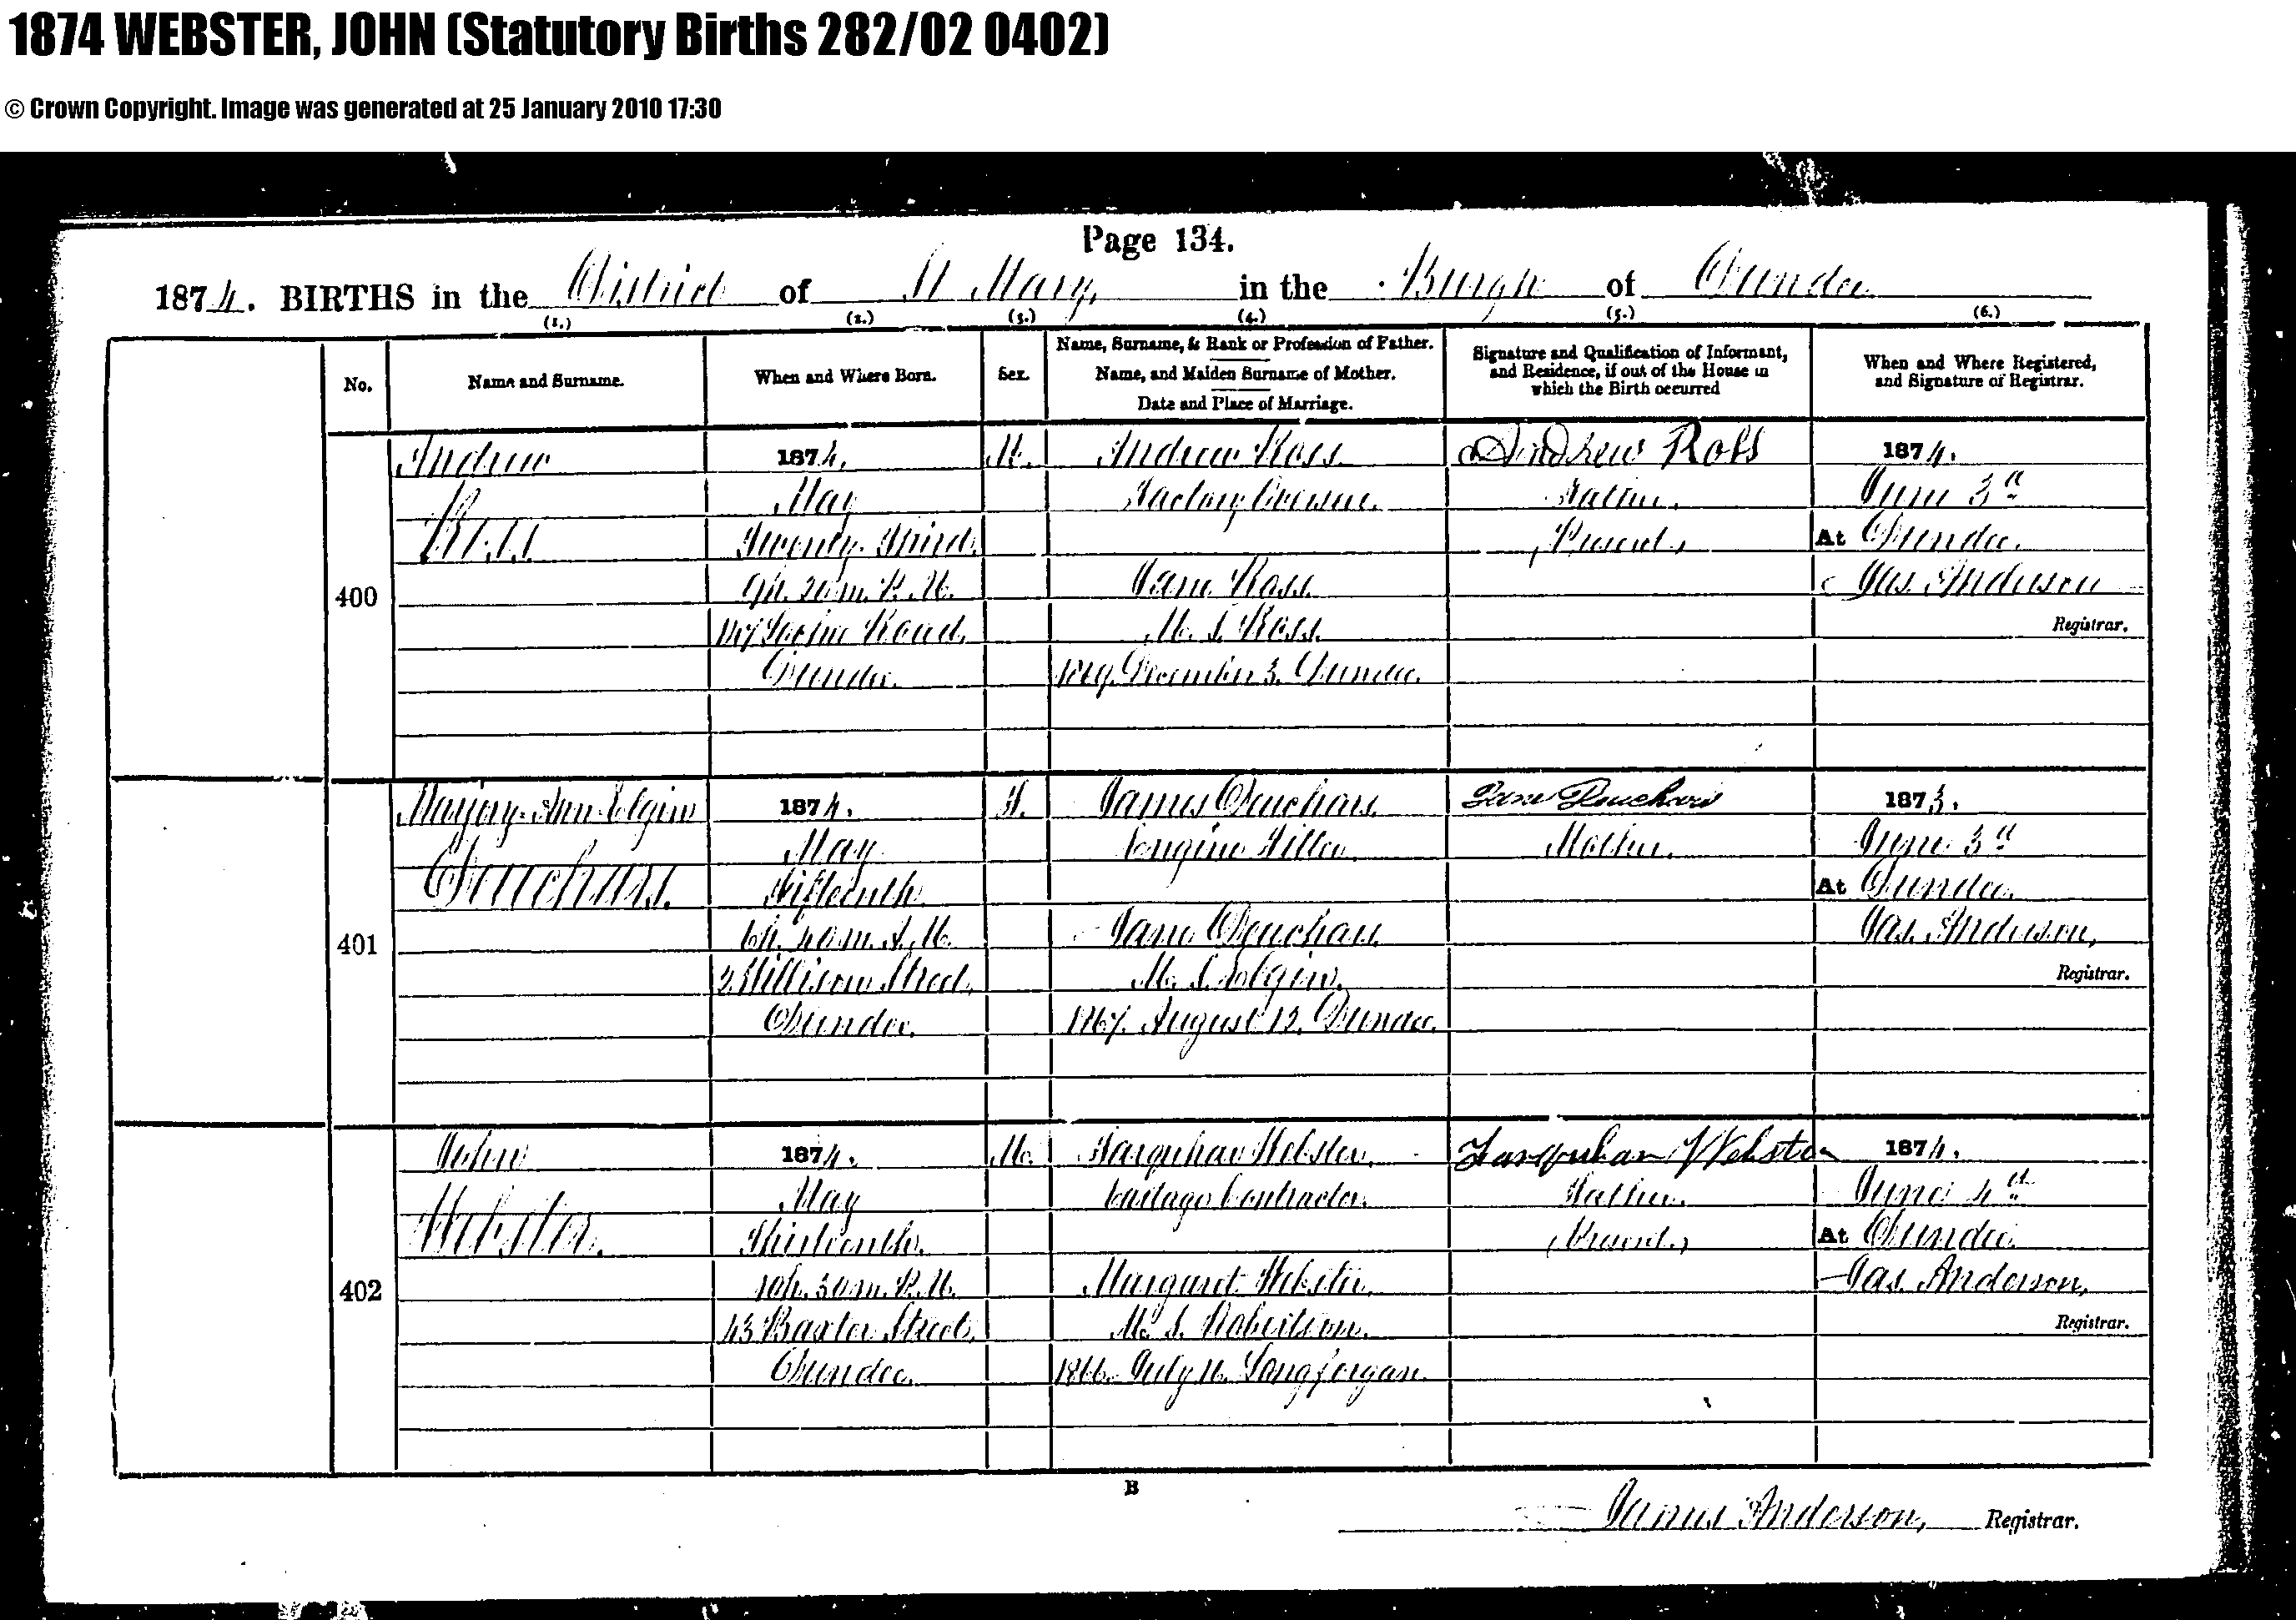 1874 WEBSTER, JOHN (Statutory Births 282/02 0402)
© Crown Copyright. Image was generated at 25 January 2010 17:30
Page 134.
1874. BIRTHS in the District of St Mary, in the Burgh of Dundee
(1.) (2.) (3.) (4.) (5.) (6.)
No.
Name and Surname.
When and Where Born.
Sex.
Name, Surname, & Rank or Profession of Father.
Name, and Maiden Surname of Mother.
Date and Place of Marriage.
Signature and Qualification of Informant,
and Residence, if out of the House in
which the Birth occurred
When and Where Registered,
and Signature of Registrar.
400
Andrew
Ross
1874.
May
Twenty third
9h. 20m. P.M.
Lochee Road,
Dundee.
M.
Andrew Ross
Factory Overseer.
Jane Ross
M. S. Ross
1869. December 3. Dundee.
Andrew Ross
Father.
(Present.)
1874.
June 3d
At Dundee.
Jas. Anderson
Registrar.
401
Marjory Ann Elgin
Deuchars.
1874.
May
Fifteenth
6h. 40m. A.M.
2 Millison Street,
Dundee.
F.
James Deuchars.
Engine Fitter
Jane Deuchars
M. S. Elgin.
1867. August 12. Dundee.
Jane Deuchars
Mother.
1873.
June 3d
At Dundee.
Jas. Anderson,
Registrar.
402
John
Webster.
1874.
May
Thirteenth.
10h. 30m. P.M.
43 Baxter Street,
Dundee.
M.
Farquhar Webster.
Cartage Contractor.
Margaret Webster
M. S. Robertson.
1866. July 16. Longforgan.
Farquhar Webster
Father.
(Present.)
1874.
June 4th
At Dundee
Jas. Anderson,
Registrar.
B
James Anderson, Registrar.